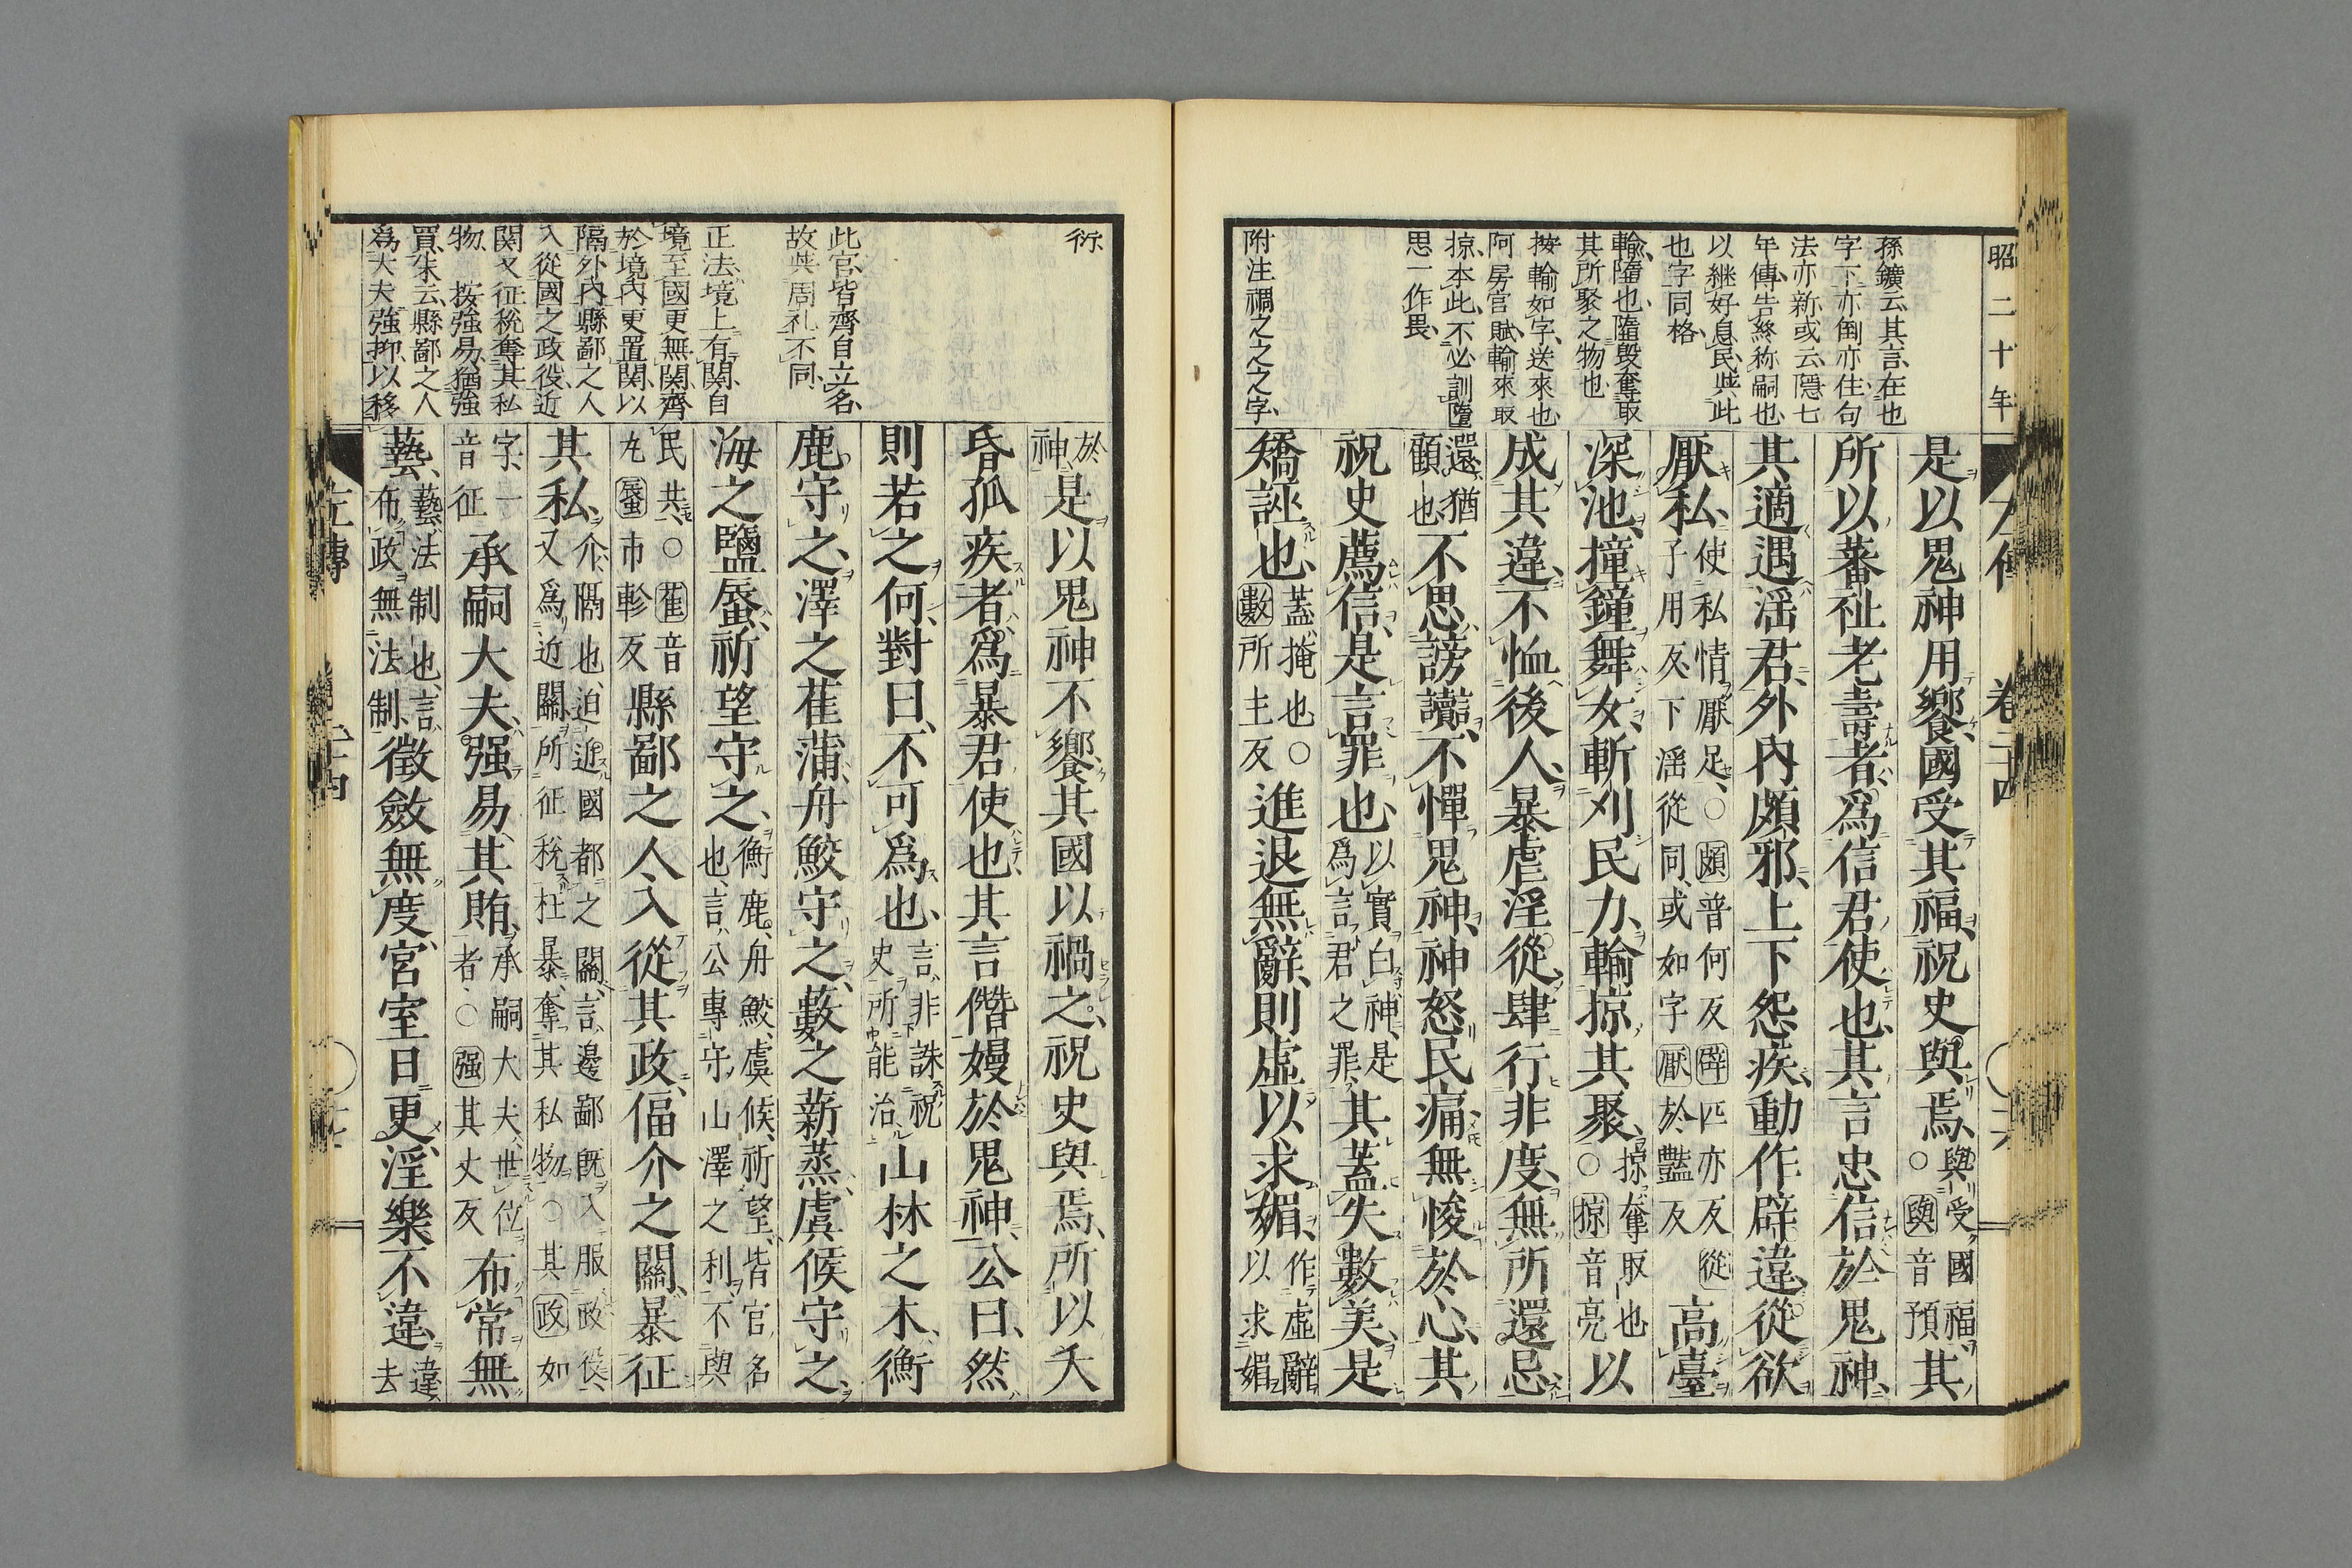 昭二十年
孫鑛云其言在也
字下亦倒亦住句
法亦新或云隱七
年傳告終称嗣也
以継好息民與此
也字同格
輸墮也墮毀奪取
其所聚之物也
按輸如字送來也
阿房宮賦輸來取
掠本此不必訓墮
思一作畏
附注禂之之之字
是以鬼神用饗國受其福祝史與焉與受國福○與音預其
所以蕃祉老壽者爲信君使也其言忠信於鬼神
其適遇淫君外內頗邪上下怨疾動作辟違從欲
厭私使私情厭足○頗普何反辟匹亦反從子用反下淫從同或如字厭於豔反高臺
深池撞鐘舞女斬刈民力輸掠其聚掠奪取也○掠音亮以
成其違不恤後人暴虐淫從肆行非度無所還忌
還猶顧也不思謗讟不憚鬼神神怒民痛無悛於心其
祝史薦信是言罪也以實白神是爲言君之罪其蓋失數美是
矯誣也蓋掩也○數所主反進退無辭則虛以求媚作虛辭以求媚
左傳 卷二十四
衍
此官皆齊自立名
故與周礼不同
正法境上有関自
境至國更無関齊
於境內更置関以
隔外內縣鄙之人
入從國之政役近
関又征稅奪其私
物 按強易猶強
買朱云縣鄙之人
爲大夫強抑以移
於神是以鬼神不饗其國以禍之祝史與焉所以夭
昏孤疾者爲暴君使也其言僭嫚於鬼神公曰然
則若之何對曰不可爲也言非誅祝史所能治山林之木衡
鹿守之澤之萑蒲舟鮫守之藪之薪蒸虞候守之
海之鹽蜃祈望守之衡鹿舟鮫虞候祈望皆官名也言公專守山澤之利不與
民共○萑音丸蜃市軫反縣鄙之人入從其政偪介之關暴征
其私介隔也迫近國都之關言邊鄙既入服政役又爲近關所征稅枉暴奪其私物○其政如
字一音征承嗣大夫强易其賄承嗣大夫世位者○强其丈反布常無
藝藝法制也言布政無法制徵斂無度宮室日更淫樂不違違去
左傳